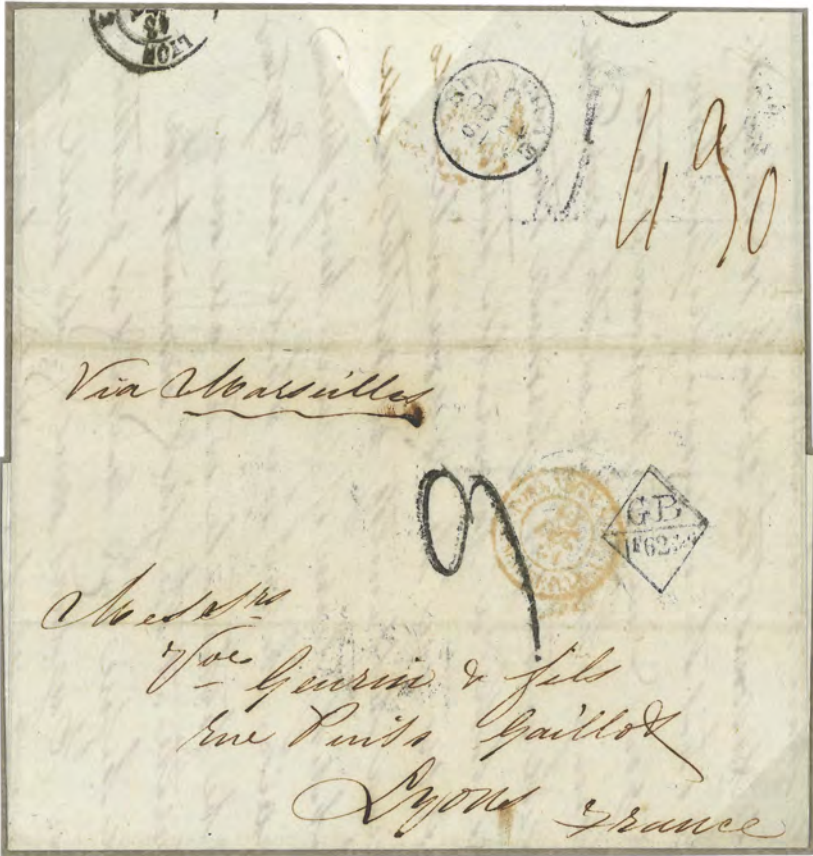 LYON
SHANGHAE
490
Via Marseilles
9
GB
1F62
Messrs
Vve Guerin & fils
rue Puits Gaillot
Lyons France